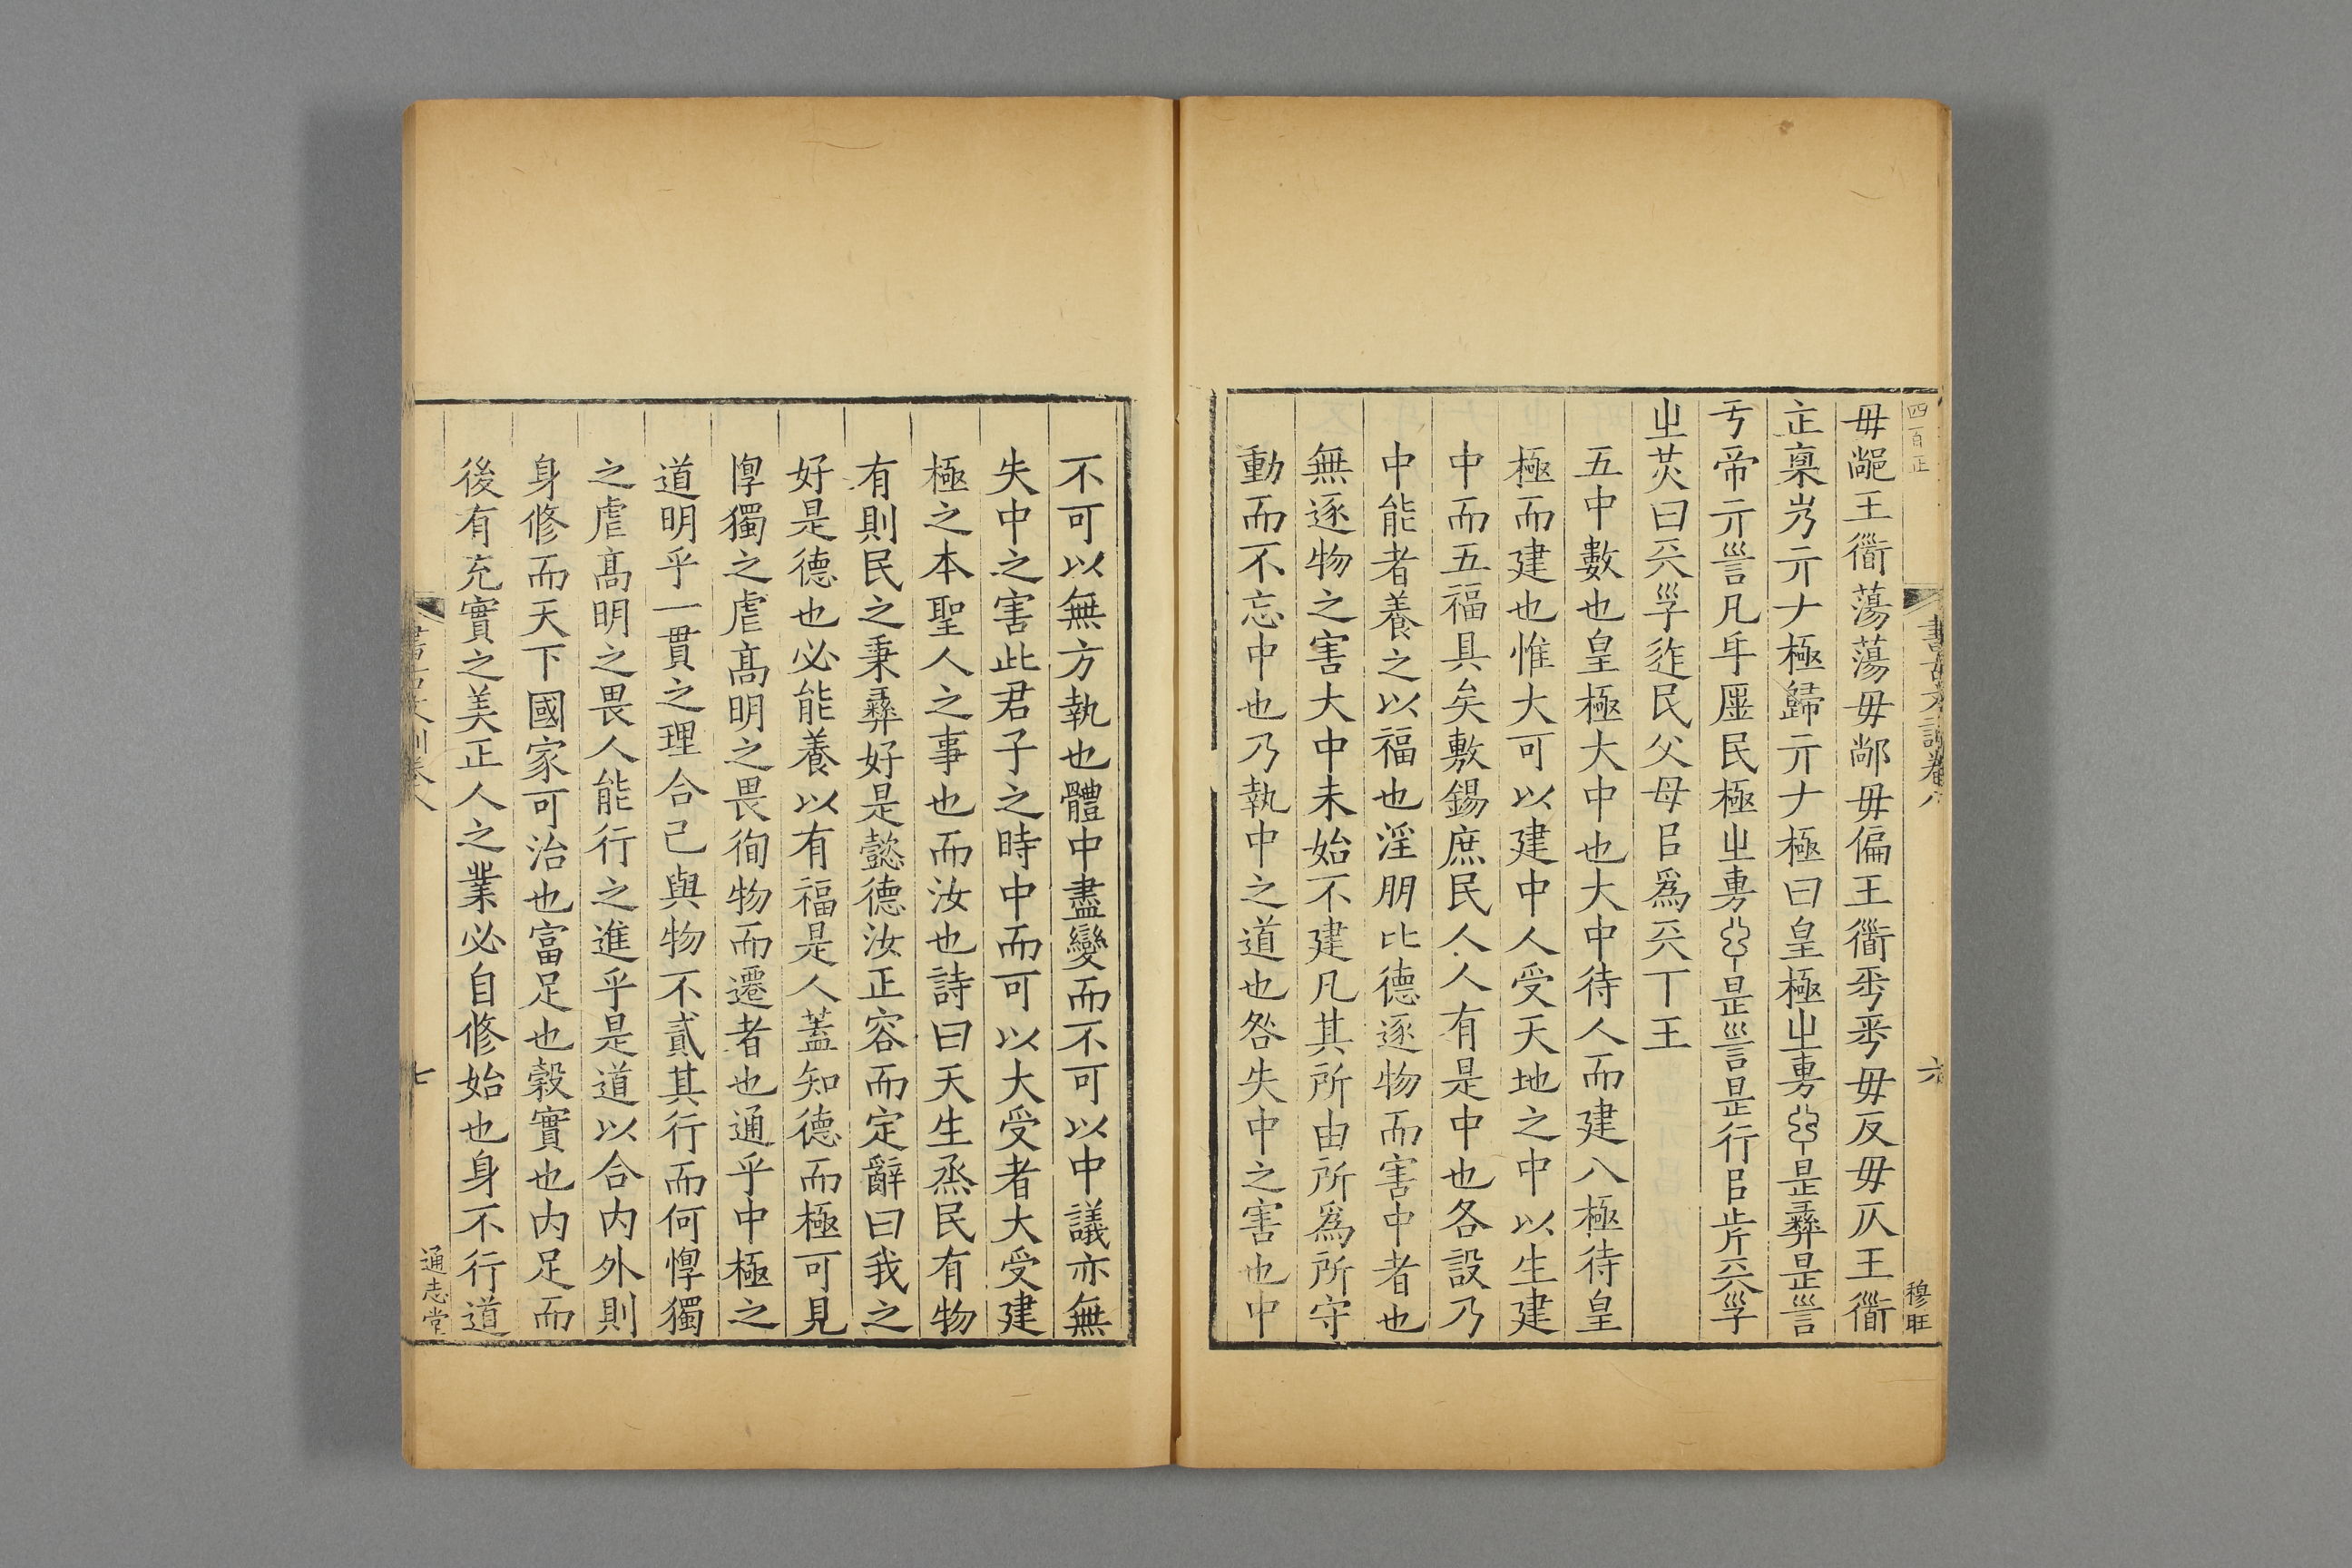 四百正
書古文訓卷八
六
穆旺
毋𨚓王衟蕩蕩毋𨚓毋偏王衟𠂹𠂹毋反毋仄王衟
㱏稟屶亓𠂇極歸亓𠂇極曰皇極㞢旉𠧟是彞是𧥛
亐帝亓𧥛凡𠂔𠪚民極㞢旉𠧟是𧥛是行㠯𣥂兲𡥈
㞢炗曰兲𡥈迮民父母㠯爲兲丅王
五中數也皇極大中也大中待人而建八極待皇
極而建也惟大可以建中人受天地之中以生建
中而五福具矣敷錫庶民人人有是中也各設乃
中能者養之以福也淫朋比德逐物而害中者也
無逐物之害大中未始不建凡其所由所爲所守
動而不忘中也乃執中之道也咎失中之害也中
不可以無方執也體中盡變而不可以中議亦無
失中之害此君子之時中而可以大受者大受建
極之本聖人之事也而汝也詩曰天生烝民有物
有則民之秉彞好是懿德汝正容而定辭曰我之
好是德也必能養以有福是人蓋知德而極可見
惸獨之虐髙明之畏徇物而遷者也通乎中極之
道明乎一貫之理合己與物不貳其行而何惸獨
之虐髙明之畏人能行之進乎是道以合内外則
身修而天下國家可治也富足也榖實也内足而
後有充實之美正人之業必自修始也身不行道
書古文訓卷八
七
通志堂